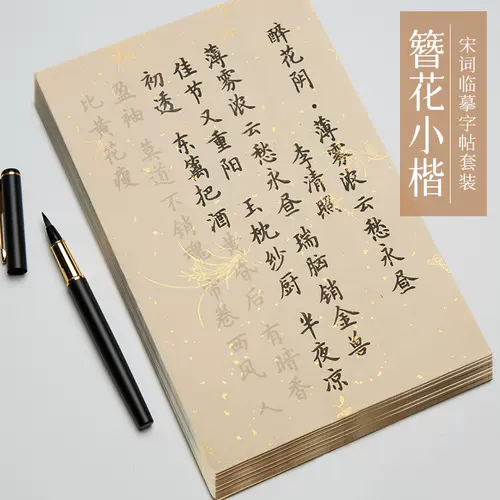 簪花小楷
宋词临摹字帖套装
醉花阴·薄雾浓云愁永昼
李清照
薄雾浓云愁永昼 瑞脑销金兽
佳节又重阳 玉枕纱厨 半夜凉
初透 东篱把酒黄昏后 有暗香
盈袖 莫道不销魂 帘卷西风 人
比黄花瘦